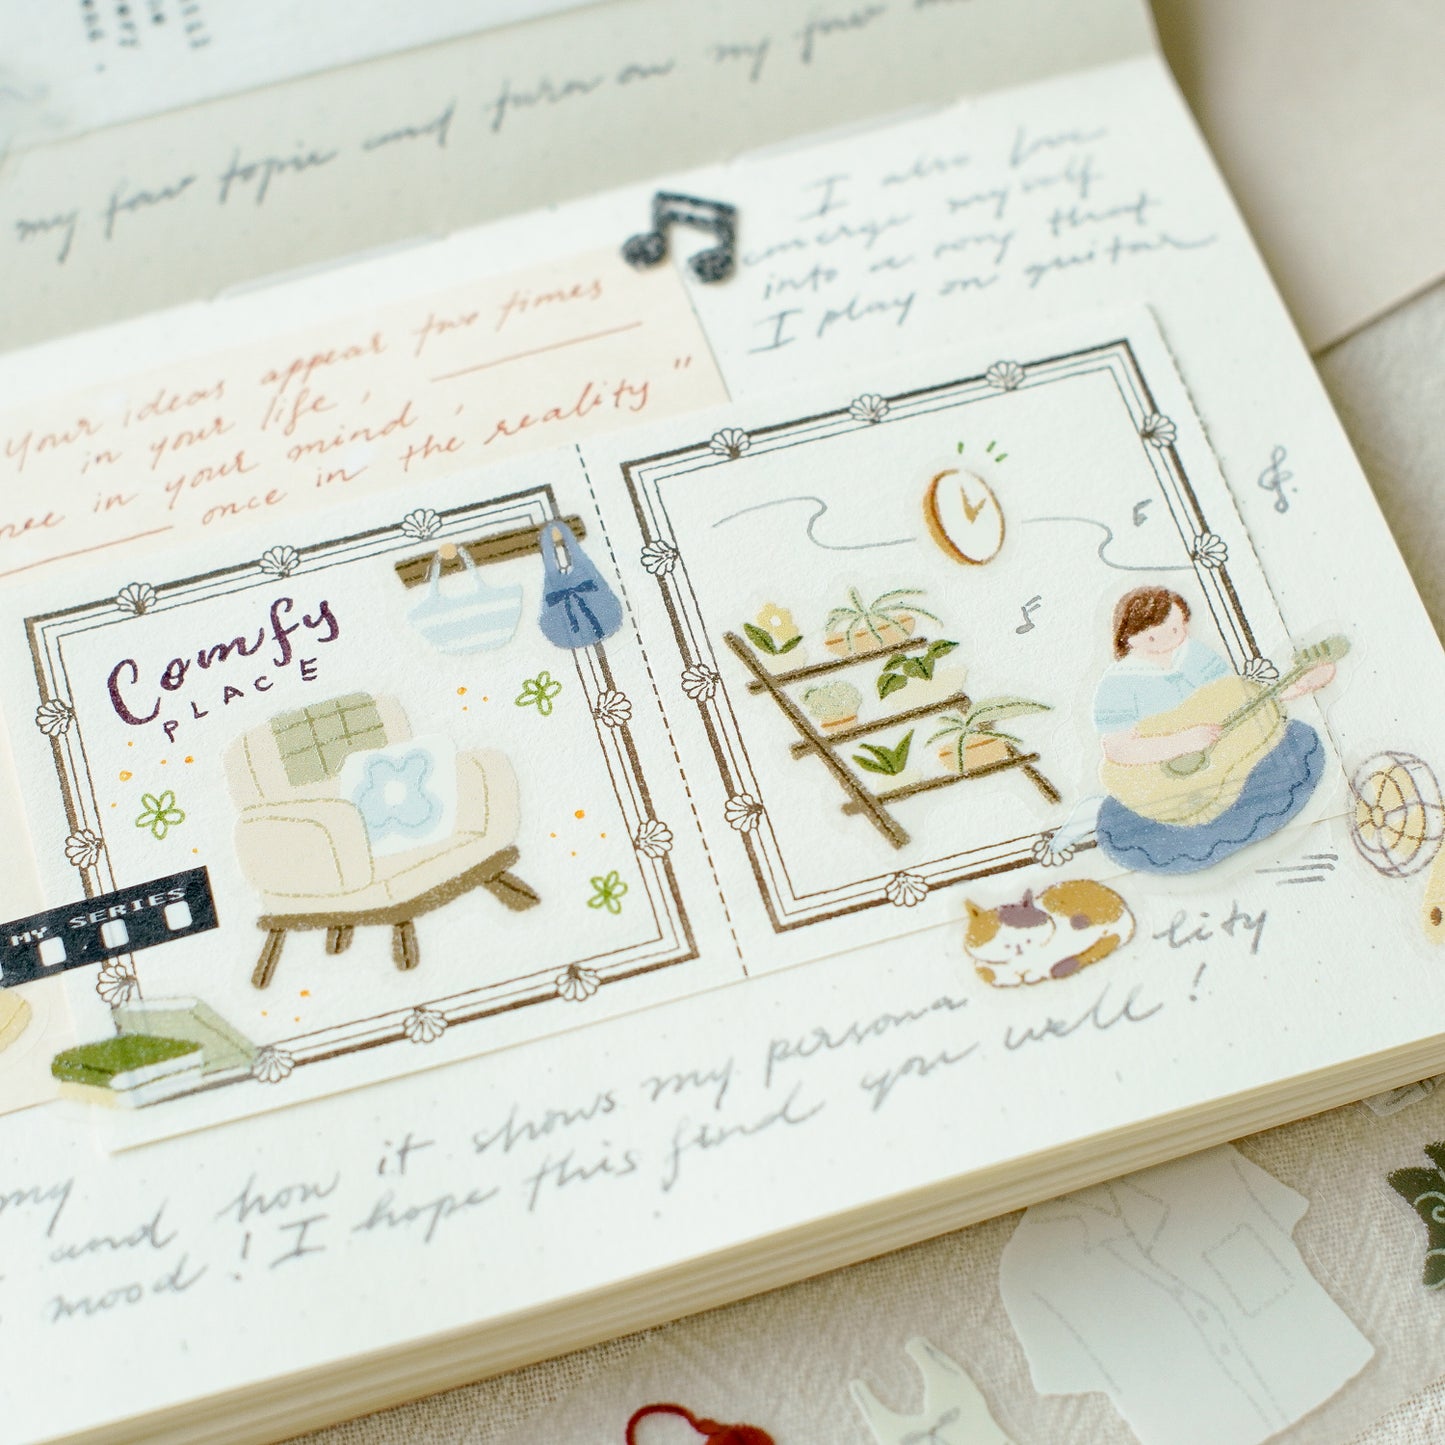 my fav topic and turn on my fav
I also love
emerge myself
into a song that
I play on guitar
your ideas appear two times
in your life,
in your mind,
once in the reality"
Comfy
PLACE
MY SERIES
my
and how it shows my persona lity
mood! I hope this find you well!